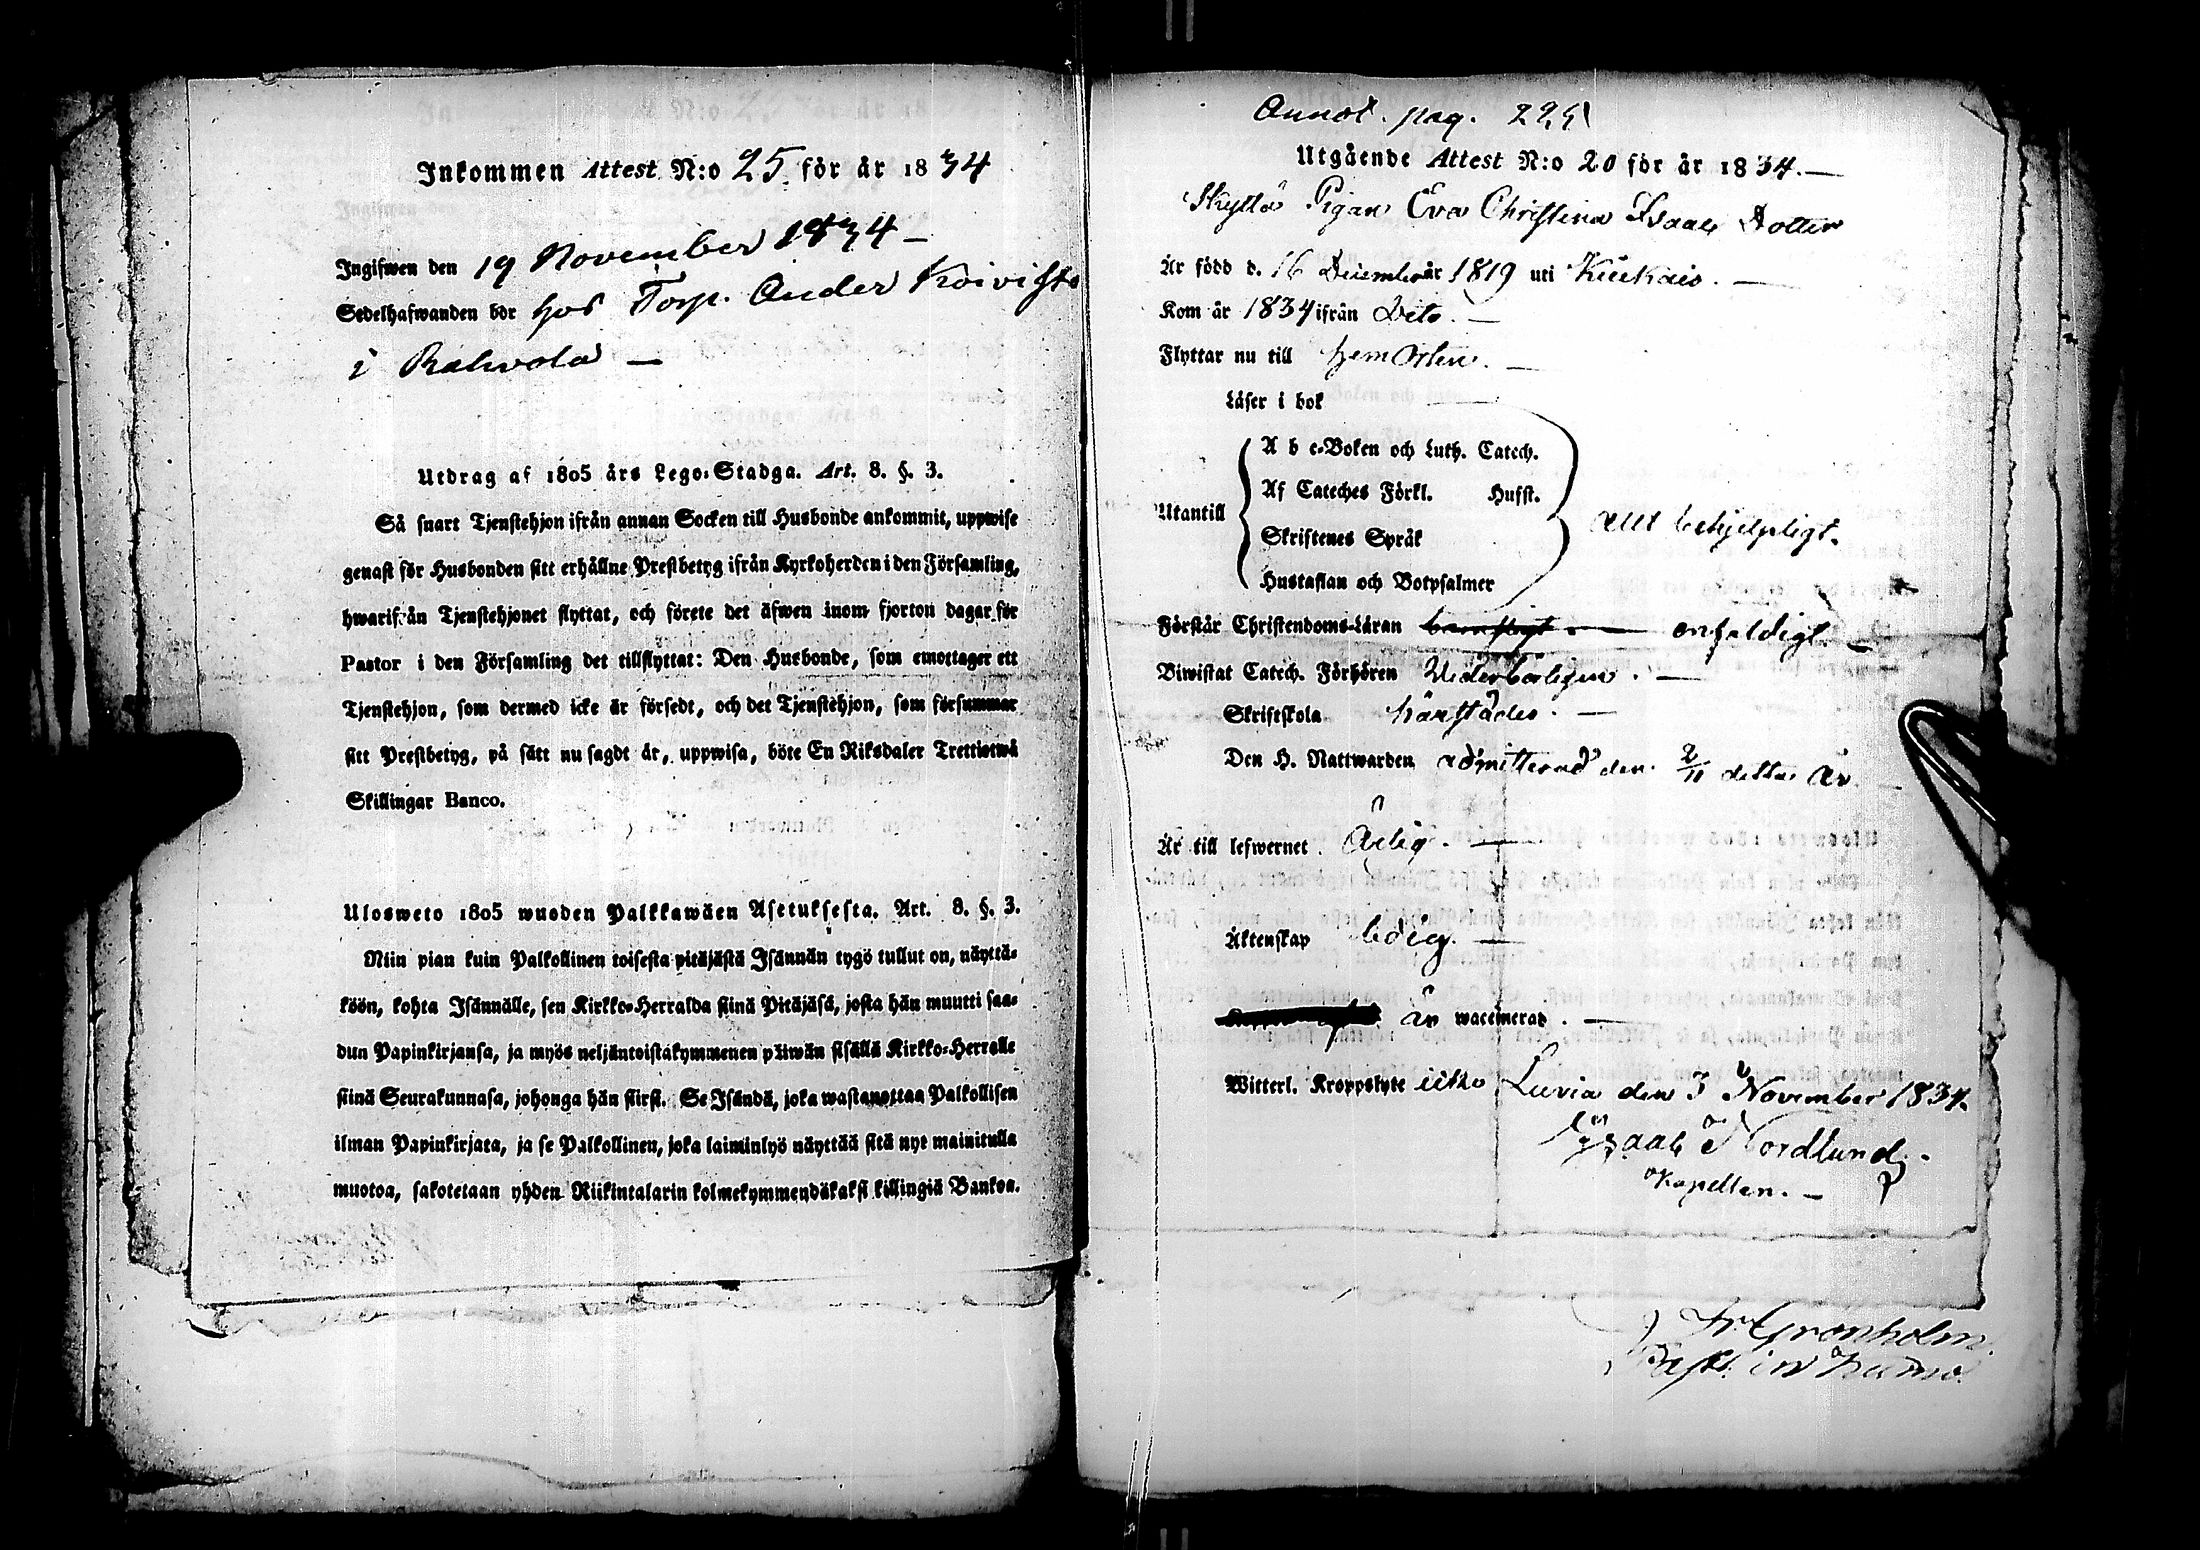 Inkommen Attest N:o 25. för år 1834
Ingifwen den 19 November 1834 –
Sedelhafwanden bor hos Torp. Ander Koivisto
i Rahvola —
Utdrag af 1805 års Lego-Stadga. Art. 8. §. 3.
Så snart Tjenstehjon ifrån annan Socken till Husbonde ankommit, uppwise
genast för Husbonden sitt erhållne Prestbetyg ifrån Kyrkoherden i den Församling,
hwarifrån Tjenstehjonet flyttat, och förete det äfwen inom fjorton dagar för
Pastor i den Församling det tillflyttat: Den Husbonde, som emottager ett
Tjenstehjon, som dermed icke är försedt, och det Tjenstehjon, som försummar
sitt Prestbetyg, på sätt nu sagdt är, uppwisa, böte En Riksdaler Trettiotwå
Skillingar Banco.
Ulosweto 1805 wuoden Palkkawäen Asetuksesta. Art. 8. §. 3.
Niin pian kuin Palkollinen toisesta pitäjästä Isännän tygö tullut on, näyttä-
köön, kohta Isännälle, sen Kirkko-Herralda siinä Pitäjäsä, josta hän muutti saa-
dun Papinkirjansa, ja myös neljäntoistakymmenen päiwän sisällä Kirkko-Herralle
siinä Seurakunnasa, johonga hän siirst. Se Isändä, joka wastanottaa Palkollisen
ilman Papinkirjata, ja se Palkollinen, joka laiminlyö näyttää sitä nyt mainitulla
muotoa, sakotetaan yhden Riikintalarin kolmekymmendäkaksi killingiä Bankoa.
Annot. pag. 225
Utgående Attest N:o 20 för år 1834. —
Pigan Eva Christina Isaacs Dotter
Är född d. 16 December år 1819 uti Kiukais. —
Kom år 1834 ifrån Dito. —
Flyttar nu till hemorten. —
Läser i bok
Utantill
A b c-Boken och Luth. Catech.
Af Cateches Förkl. Husst.
Skriftenes Språk
Hustaflan och Botpsalmer
allt behjelpligt.
Förstår Christendoms-Läran enfaldigt —
Biwistat Catech. Förhören Vederbörligen. —
Skriftskola härstädes. —
Den H. Nattwarden admitterad den 2/11 detta år.
Är till lefwernet Ärlig. —
Äktenskap ledig. —
är waccinerad. —
Witterl. Kroppslyte icke Luvia den 3 November 1834.
Isaac Nordlund.
Kapellan. —
Fr Grönholm.